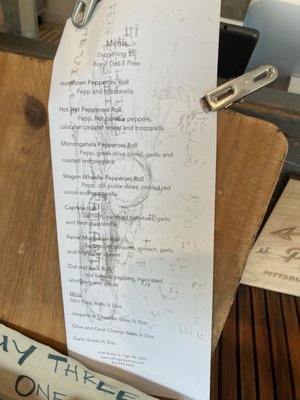 Menu
Everything $5
Buy 3 Get 1 Free
Hometown Pepperoni Roll
Pepp and Mozzarella
Hot Trot Pepperoni Roll
Pepp, hot banana peppers,
calabrian pepper smear and mozzarella
Monongahela Pepperoni Roll
Pepp, greek olive blend, garlic and
roasted red peppers
Wagon Wheelie Pepperoni Roll
Pepp, dill pickle slices, pickled red
onion and mozzarella
Caprese Roll
Spinach, tomatoes, garlic
and fresh mozzarella
Ferns Mushroom Roll
mushroom, spinach, garlic
and goat cheese
Out and Back Roll
Hot banana peppers, marinated
artichokes and spices
Minis
Mini Pepp Rolls ½ Doz.
Jalapeno & Cheddar Bites ½ Doz.
Olive and Goat Cheese Bites ½ Doz.
Garlic Knots ½ Doz.
PITTSBU
UY THREE
ONE